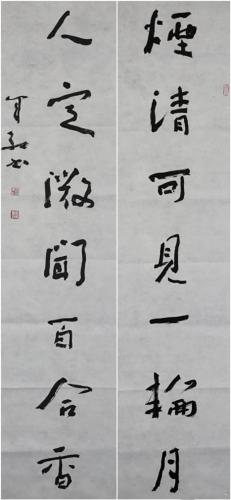 煙清可見一輪月
人定微聞百合香